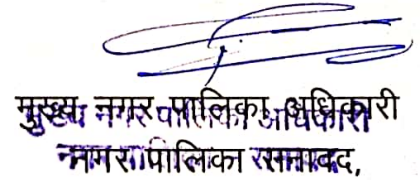 मुख्य नगर पालिका अधिकारी
नगर पालिका सनावद,